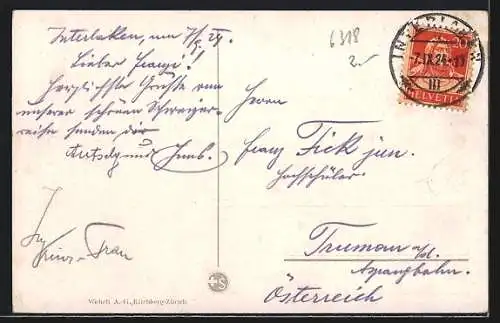 Interlaken, am 7/9. 24.
Lieber Franzi!
Herzlichste Grüsse von
unserer schönen Schweizer-
reise senden dir
und
6318
2.-
INTERLAKEN
-7.IX.24.-11
III
HELVETIA
Herrn
Franz Fick jun.
Hochschüler
Truman a/d.
Aspangbahn.
Österreich
Frau
Wehrli A.-G., Kilchberg-Zürich